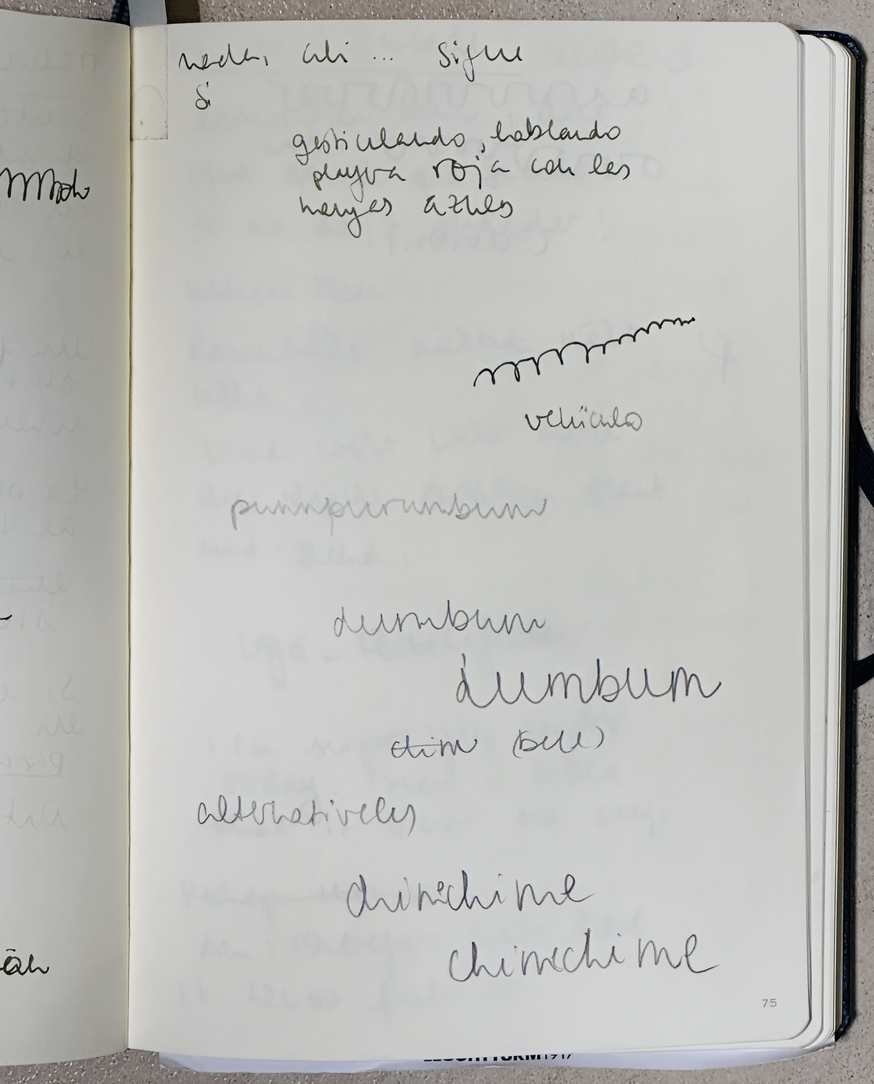 nada, ahi ... sigue
si
gesticulando, hablando
playva roja con las
mangas azules
vehículo
pummpurumbum
dumbum
dumbum
dim (bell)
alternatively
chimechime
chimechime
75
LEUCHTTURM1917